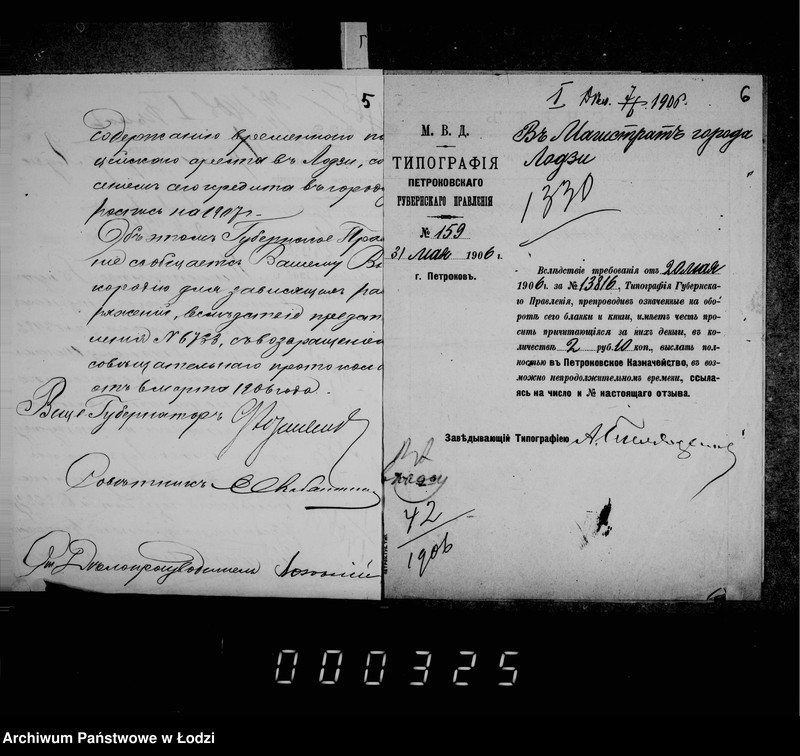 5
содержанію временнаго по
цейскаго ареста въ Лодзи, со
сеніемъ сего кредита въ город
роспись на 1907 г.
Объ этомъ Губернское Прав
ніе сообщаетъ Вашему Вы
кородію для зависящихъ рас
ряженій, вслѣдствіе предст
ленія № 6733, съ возвращеніемъ
совѣщательнаго протокола
отъ марта 1906 года.
Вице Губернаторъ
Совѣтникъ
Дѣлопроизводителя
6
I 7/6 1906.
М. В. Д.
ТИПОГРАФІЯ
ПЕТРОКОВСКАГО
ГУБЕРНСКАГО ПРАВЛЕНІЯ
№ 159
31 Мая 1906 г.
г. Петроковъ.
Въ Магистратъ города
Лодзи
1330
Вслѣдствіе требованія отъ 20 мая
1906 г. за № 13816, Типографія Губернска-
го Правленія, препроводивъ означенные на обо-
ротѣ сего бланки и книги, имѣетъ честь про-
сить причитающіяся за нихъ деньги, въ ко-
личествѣ 2 руб. 10 коп., выслать пол-
ностью въ Петроковское Казначейство, въ воз-
можно непродолжительномъ времени, ссыла-
ясь на число и № настоящаго отзыва.
Завѣдывающій Типографіею
42
1906
000325
Archiwum Państwowe w Łodzi